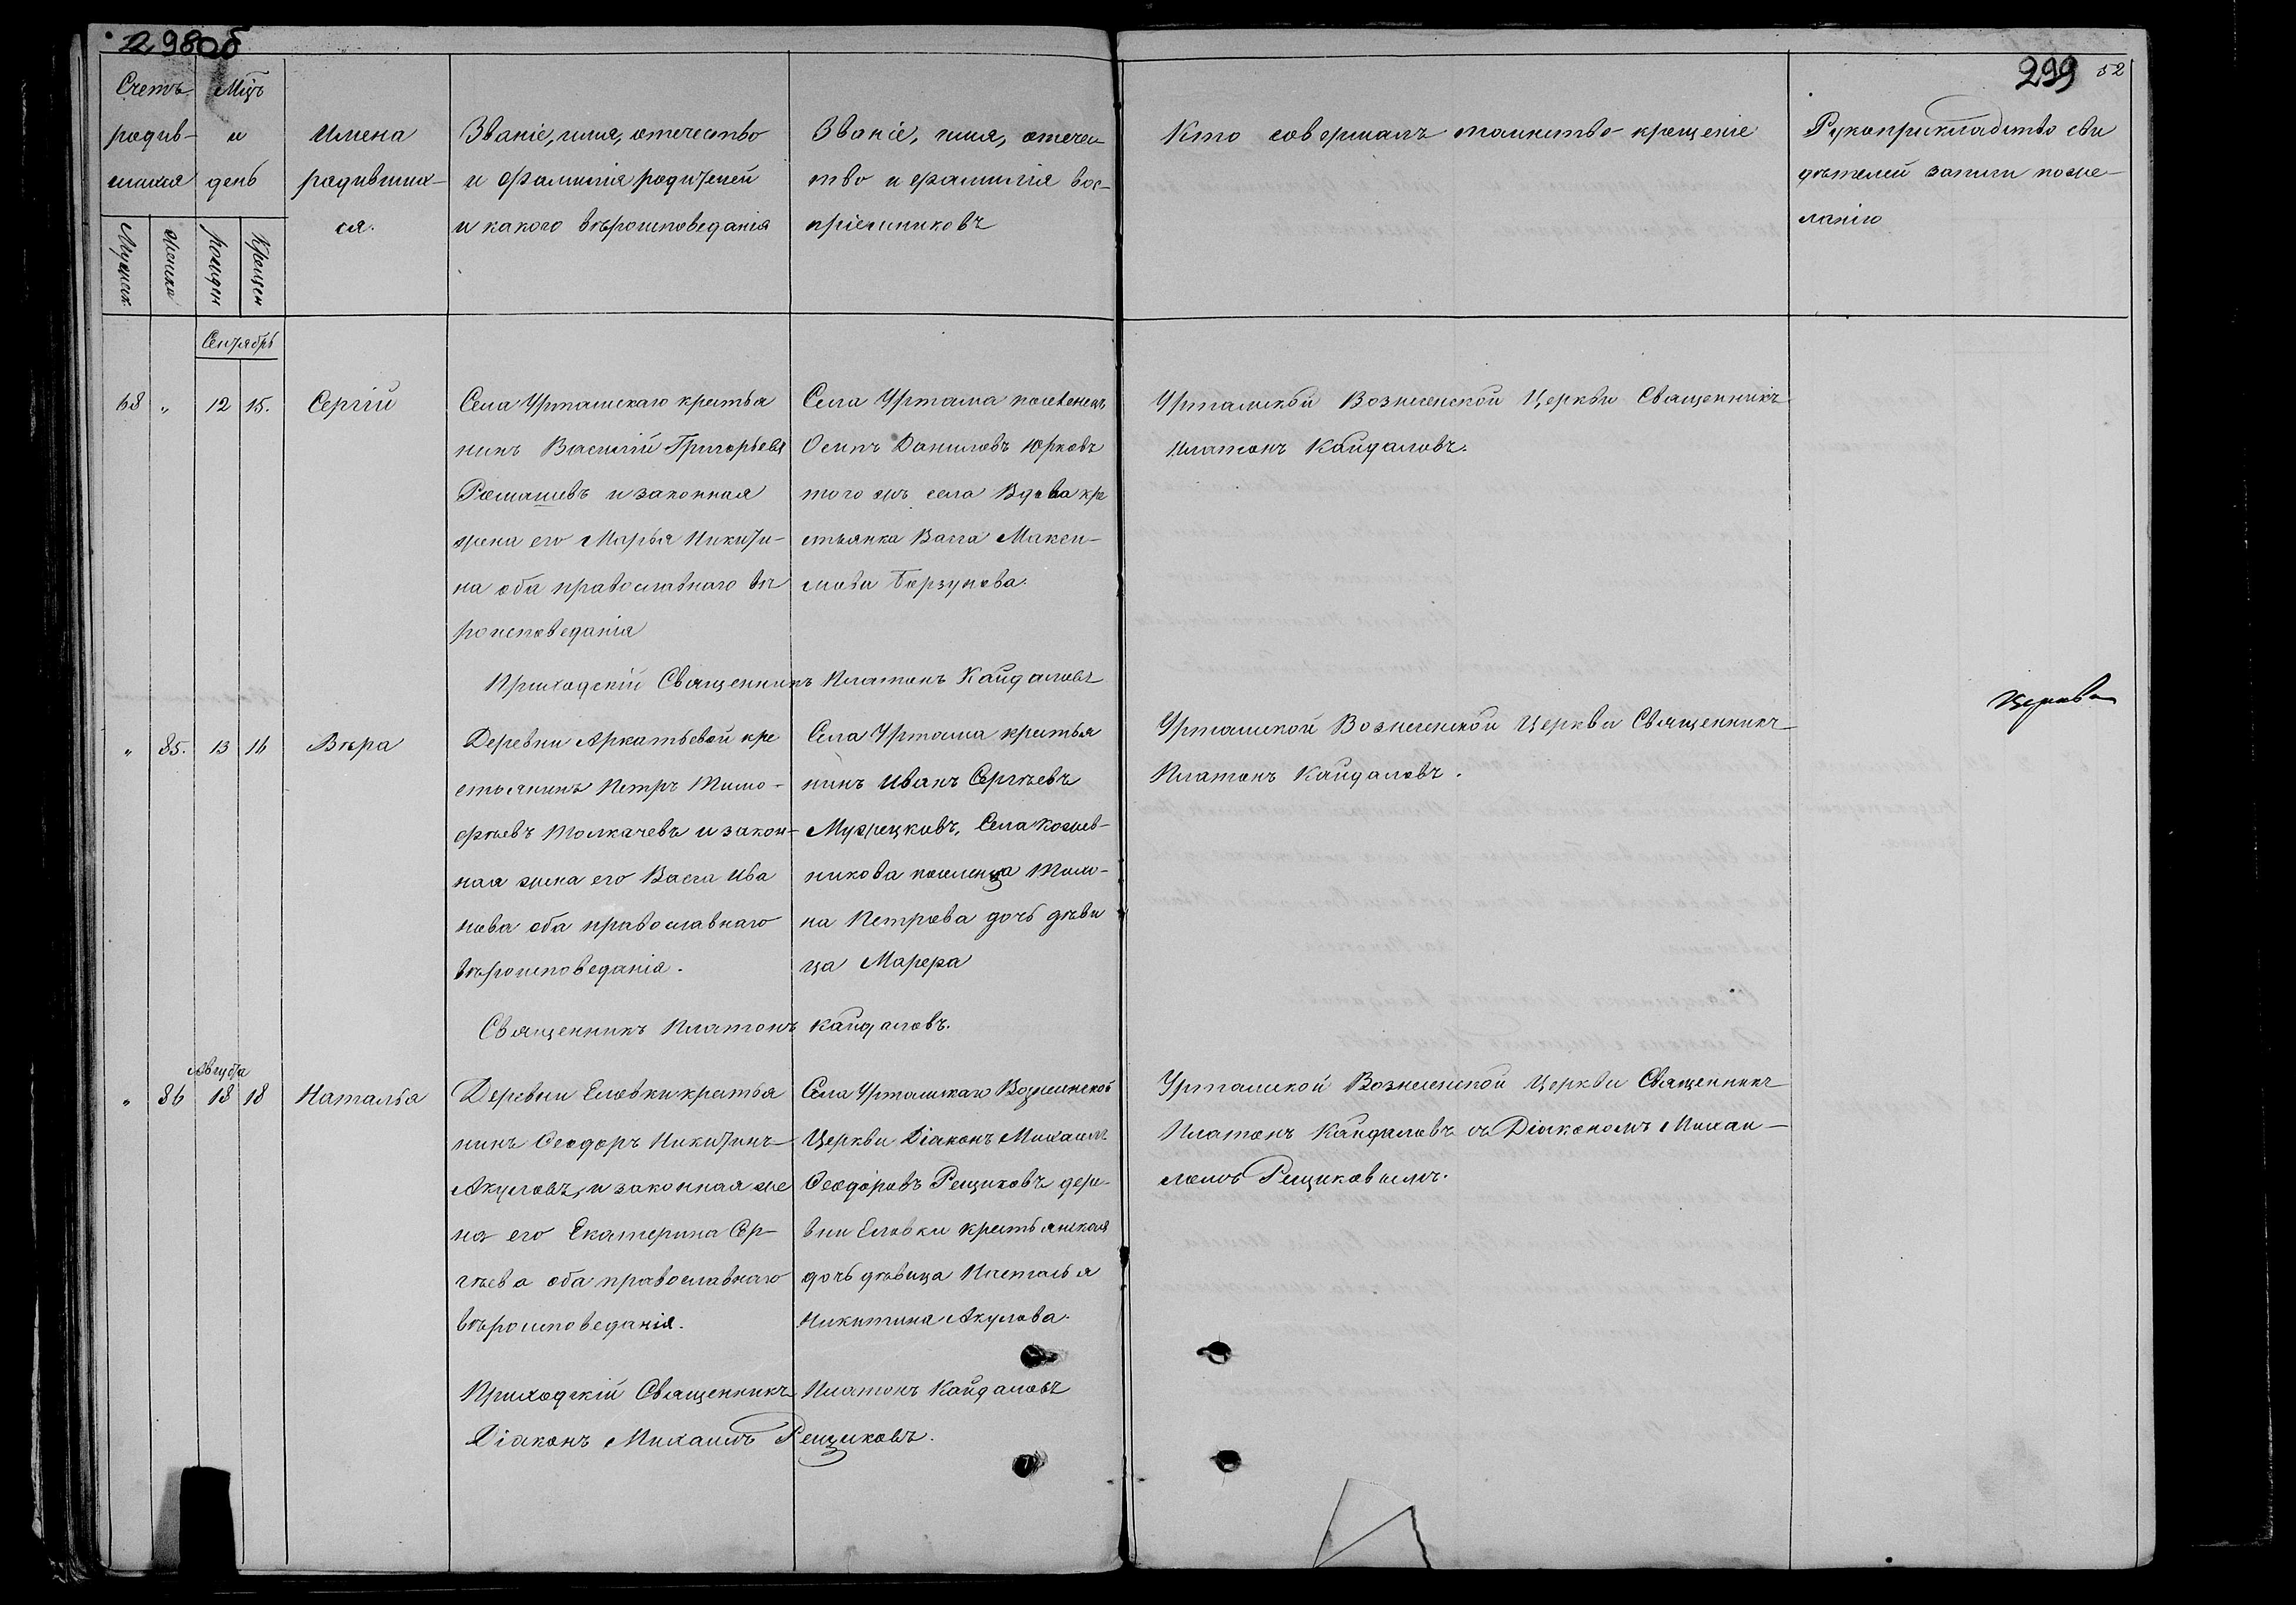 298об
299 52
Счетъ
родив-
шихся
Мцъ
и
день
Имена
родивших-
ся.
Званіе, имя, отечество
и фамилія родителей
и какого вѣроисповеданія
Званіе, имя, отечес-
тво и фамилія вос-
пріемниковъ
Кто совершалъ таинство крещеніе
Рукоприкладство сви
дѣтелей записи по же-
ланію
Мужеск.
женска
рожден
Крещен
Сентябрь
68 " 12 15. Сергій
Села Уртамскаго крестья
нинъ Василій Григорьевъ
Ромашевъ и законная
жена его Марья Никити-
на оба православнаго вѣ
роисповеданія
Села Уртама поселенецъ
Осипъ Даниловъ Юрковъ
того жъ села Вдова кре
стьянка Васса Макси-
мова Борзунова.
Уртамской Вознесенской Церкви Священникъ
Платонъ Кайдаловъ.
Приходскій Священникъ Платонъ Кайдаловъ
" 85. 13 16 Вѣра
Деревни Аркатьевой кре
стьянинъ Петръ Тимо-
фѣевъ Толкачевъ и закон-
ная жена его Васса Ива
нова оба православнаго
вѣроисповеданія.
Села Уртама крестья
нинъ Иванъ Сергѣевъ
Мужецковъ, Села Кожев-
никова поселенца Тимо-
на Петрова дочь дѣви
ца Марфа
Уртамской Вознесенской Церкви Священникъ
Платонъ Кайдаловъ.
Священникъ Платонъ Кайдаловъ.
Августа
" 86 18 18 Наталья
Деревни Еловки крестья
нинъ Феодоръ Никитинъ
Акуловъ, и законная же
на его Екатерина Сер-
гѣева оба православнаго
вѣроисповеданія.
Села Уртамскаго Вознесенской
Церкви Діаконъ Михаилъ
Феодоровъ Рещиковъ дере-
вни Еловки крестьянская
дочь дѣвица Наталья
Никитина Акулова.
Уртамской Вознесенской Церкви Священникъ
Платонъ Кайдаловъ съ Діакономъ Михаи-
ломъ Рещиковымъ.
Приходскій Священникъ Платонъ Кайдаловъ
Діаконъ Михаилъ Рещиковъ.